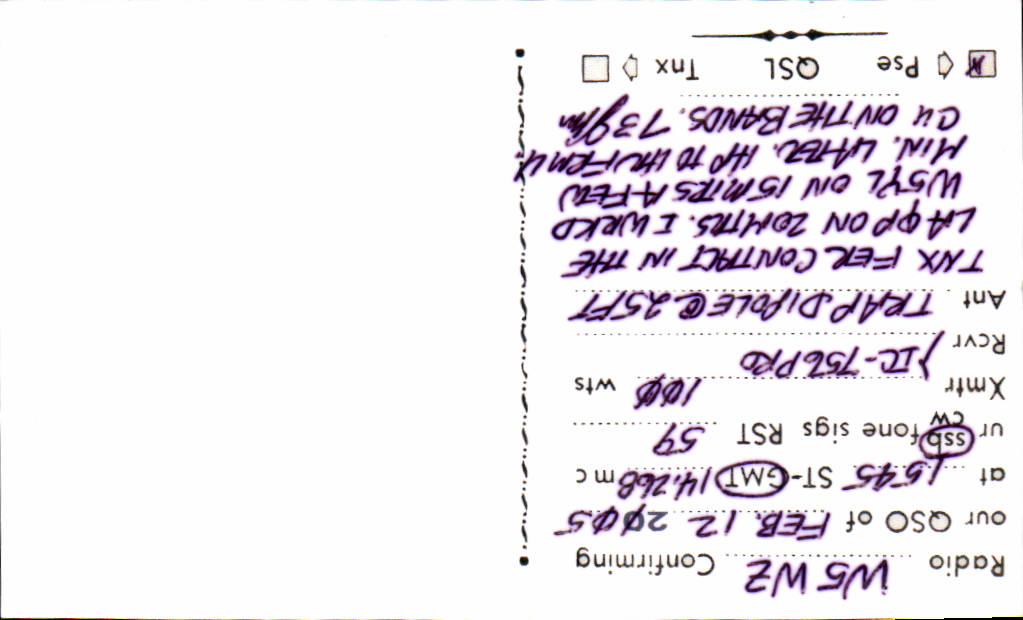 Radio W5WZ Confirming
our QSO of FEB. 12 20Ø5
at 1545 ST-GMT 14.268 mc
ur ssb fone sigs RST 59
cw
Xmtr 1ØØ wts
} IC-756 PRO
Rcvr
Ant TRAP DIPOLE @ 25FT
TNX FER CONTACT IN THE
LA QP ON 20 MTRS. I WRKD
W5YL ON 15 MTRS A FEW
MIN. LATER. HP TO HV FRM U.
CU ON THE BANDS. 73
Pse QSL Tnx